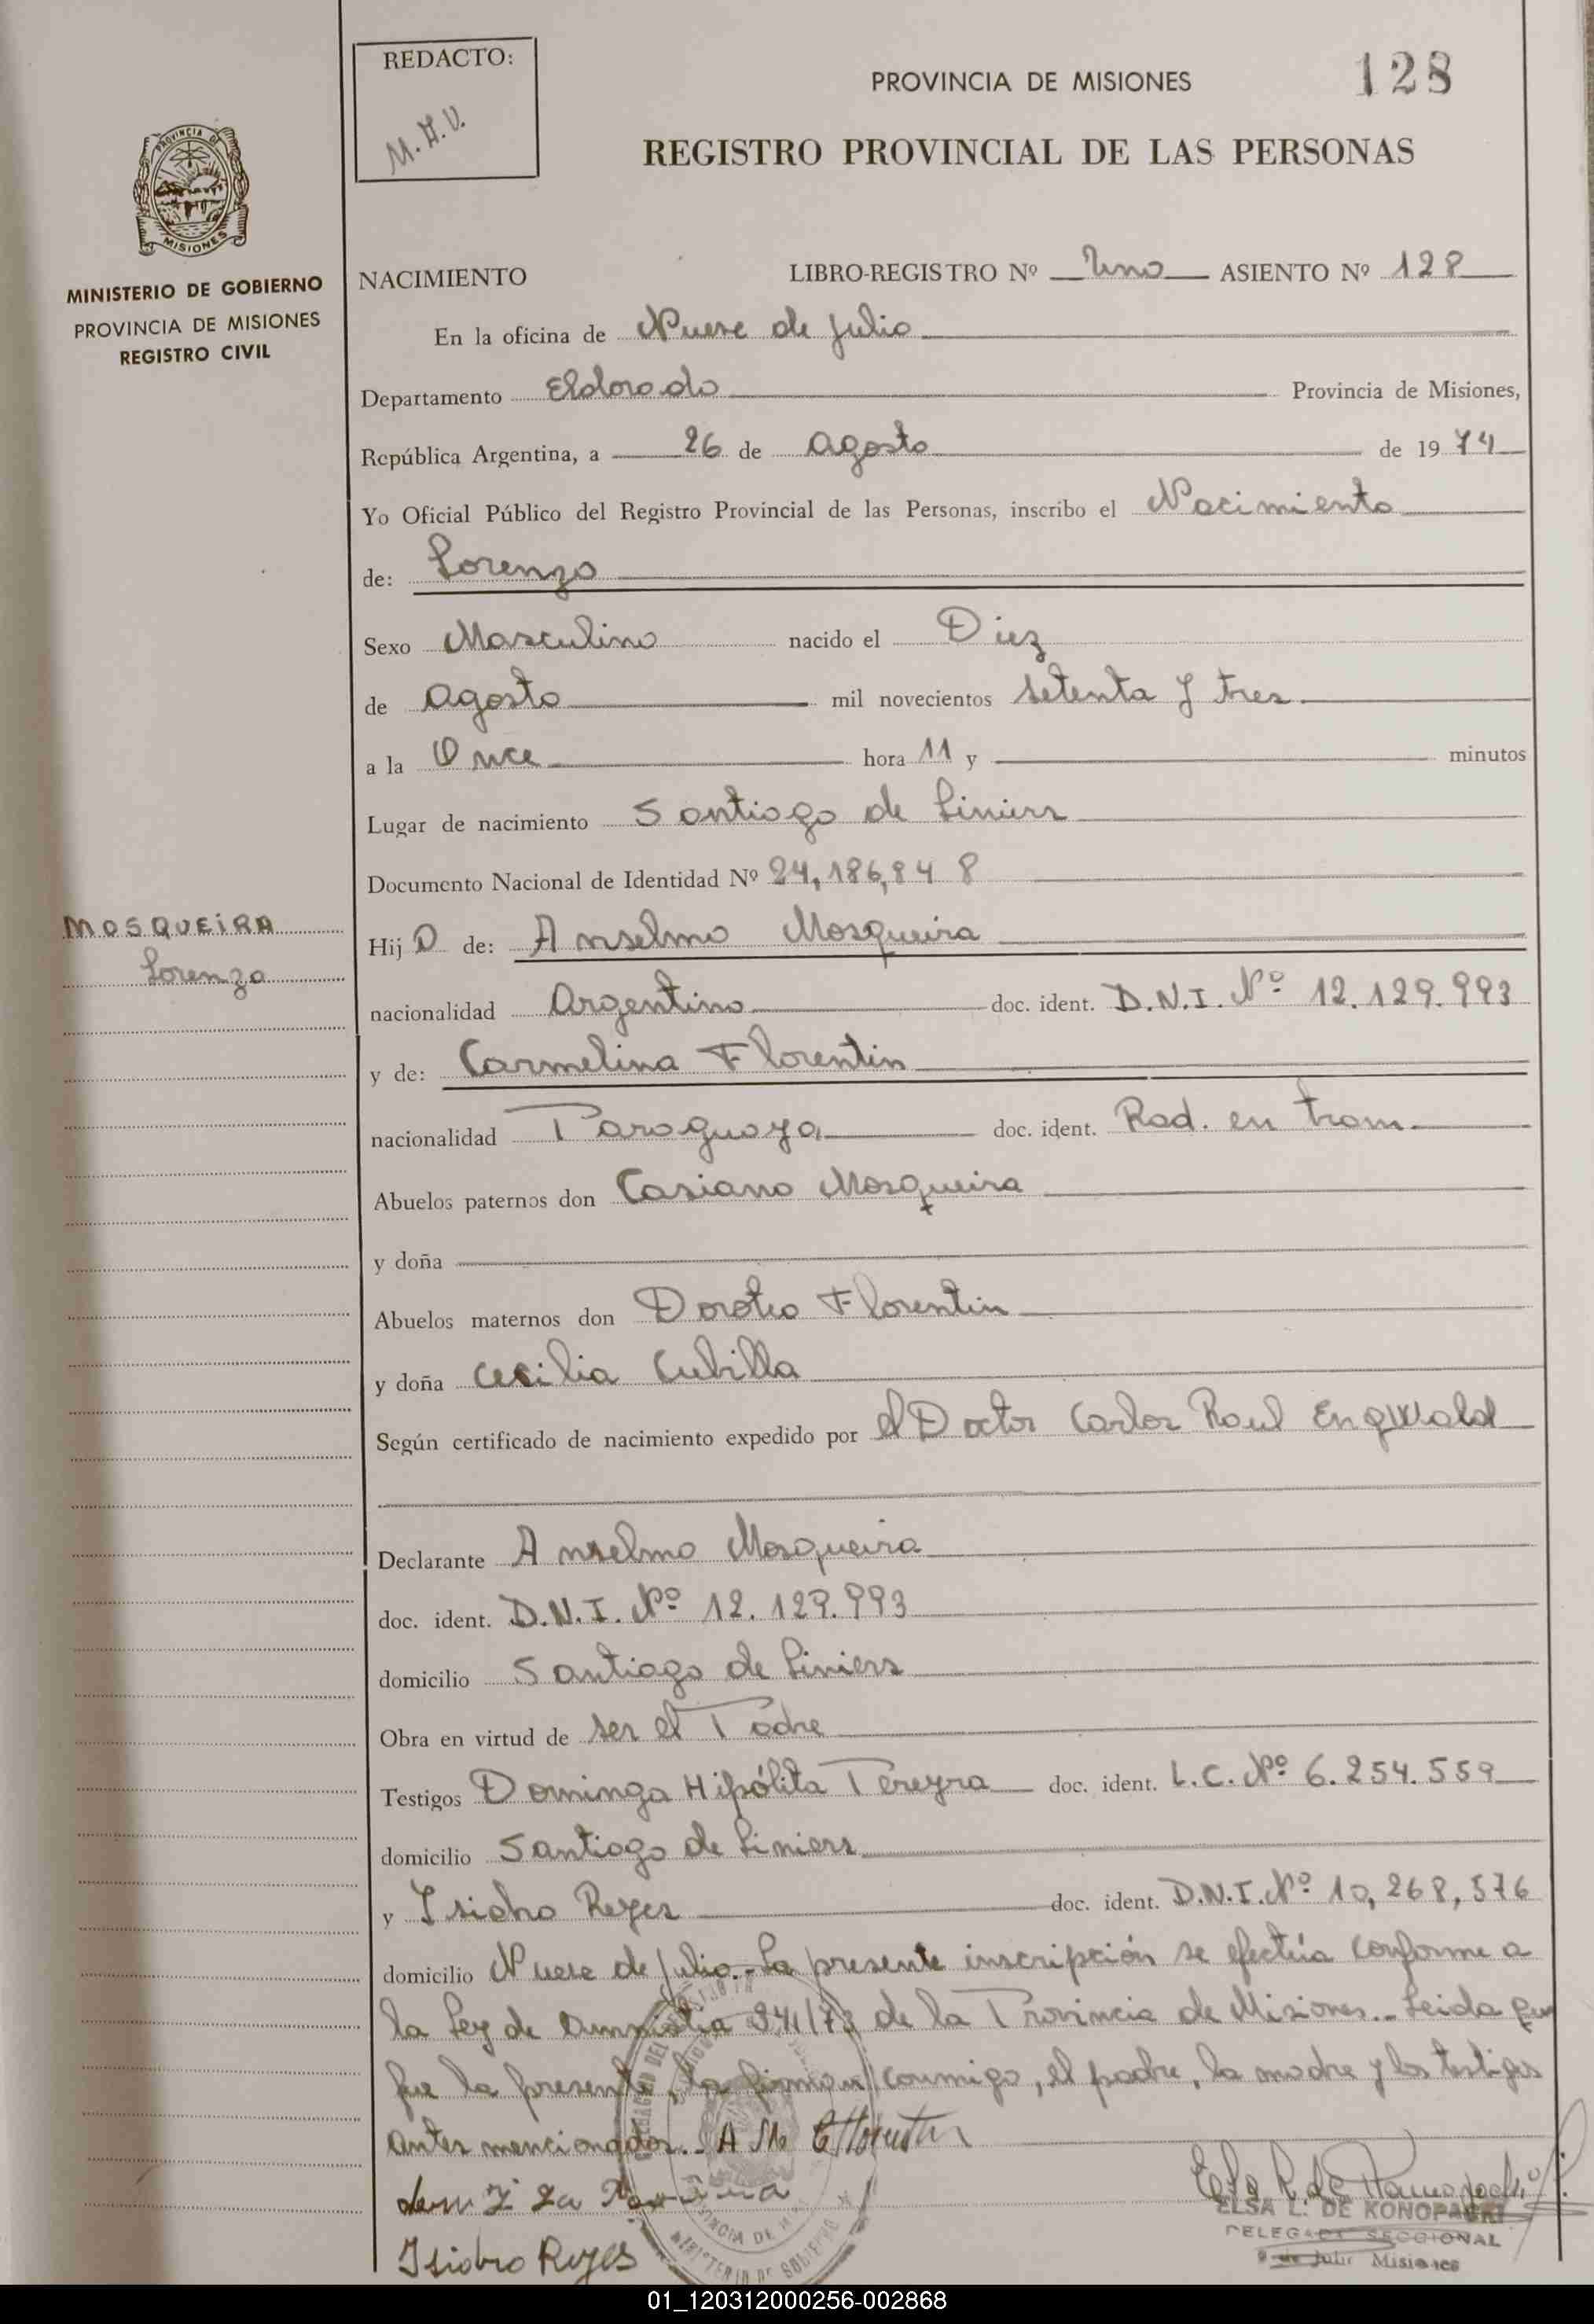 REDACTO:
M.H.V.
PROVINCIA DE MISIONES
128
REGISTRO PROVINCIAL DE LAS PERSONAS
PROVINCIA DE
MISIONES
MINISTERIO DE GOBIERNO
PROVINCIA DE MISIONES
REGISTRO CIVIL
NACIMIENTO LIBRO-REGISTRO Nº Uno ASIENTO Nº 128
En la oficina de Nueve de Julio
Departamento Eldorado Provincia de Misiones,
República Argentina, a 26 de Agosto de 1974
Yo Oficial Público del Registro Provincial de las Personas, inscribo el Nacimiento
de: Lorenzo
Sexo Masculino nacido el Diez
de Agosto mil novecientos setenta y tres
a la Once hora 11 y minutos
Lugar de nacimiento Santiago de Liniers
Documento Nacional de Identidad Nº 24,186,848
MOSQUEIRA
Lorenzo
Hij O de: Anselmo Mosqueira
nacionalidad Argentino doc. ident. D.N.I. Nº 12.129.993
y de: Carmelina Florentin
nacionalidad Paraguaya doc. ident. Rad. en tram.
Abuelos paternos don Casiano Mosqueira
y doña
Abuelos maternos don Doroteo Florentin
y doña Cecilia Cubilla
Según certificado de nacimiento expedido por el Doctor Carlos Raul Engwald
Declarante Anselmo Mosqueira
doc. ident. D.N.I. Nº 12.129.993
domicilio Santiago de Liniers
Obra en virtud de ser el Padre
Testigos Dominga Hipólita Pereyra doc. ident. L.C. Nº 6.254.559
domicilio Santiago de Liniers
y Isidro Reyes doc. ident. D.N.I. Nº 10,268,576
domicilio Nueve de Julio.- La presente inscripción se efectúa conforme a
la Ley de Amnistia 941/73 de la Provincia de Misiones.- Leida que
fue la presente, la firman conmigo, el padre, la madre y los testigos
antes mencionados.- A Mo C Florentin
Isidro Reyes
ELSA L. DE KONOPACKI
DELEGADA SECCIONAL
9 de Julio Misiones
MINISTERIO DE GOBIERNO
01_120312000256-002868